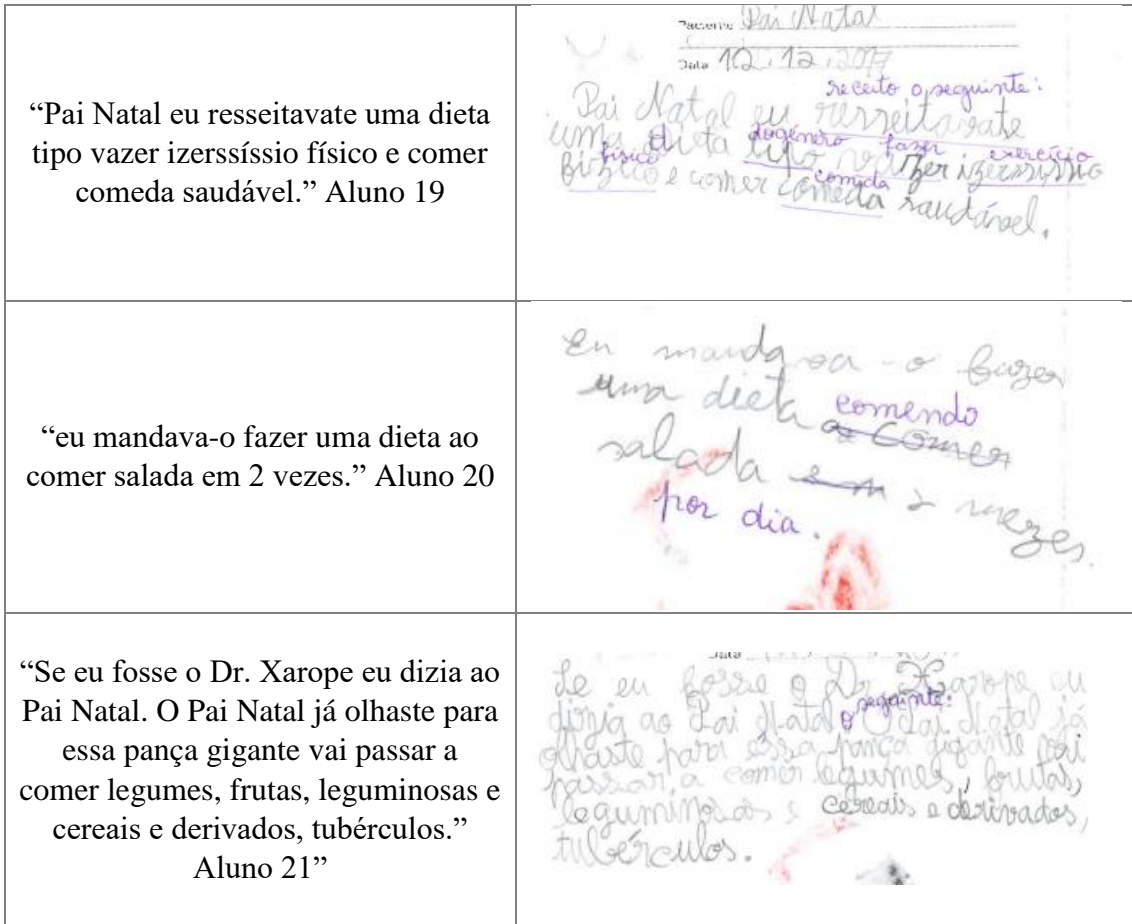 “Pai Natal eu resseitavate uma dieta
tipo vazer izerssíssio físico e comer
comeda saudável.” Aluno 19
Pai Natal
Data 12.12.2017
receito o seguinte:
Pai Natal eu resseitavate
dogénero fazer exercício
uma dieta tipo vazer izerssíssio
físico comida
fízico e comer comeda saudável.
“eu mandava-o fazer uma dieta ao
comer salada em 2 vezes.” Aluno 20
Eu mandava-o fazer
uma dieta
comendo
ao comer
salada em 2 vezes.
por dia.
“Se eu fosse o Dr. Xarope eu dizia ao
Pai Natal. O Pai Natal já olhaste para
essa pança gigante vai passar a
comer legumes, frutas, leguminosas e
cereais e derivados, tubérculos.”
Aluno 21”
Data
Se eu fosse o Dr. Xarope eu
o seguinte:
dizia ao Pai Natal O Pai Natal já
olhaste para essa pança gigante vai
passar a comer legumes, frutas,
leguminosas e cereais e derivados,
tubérculos.